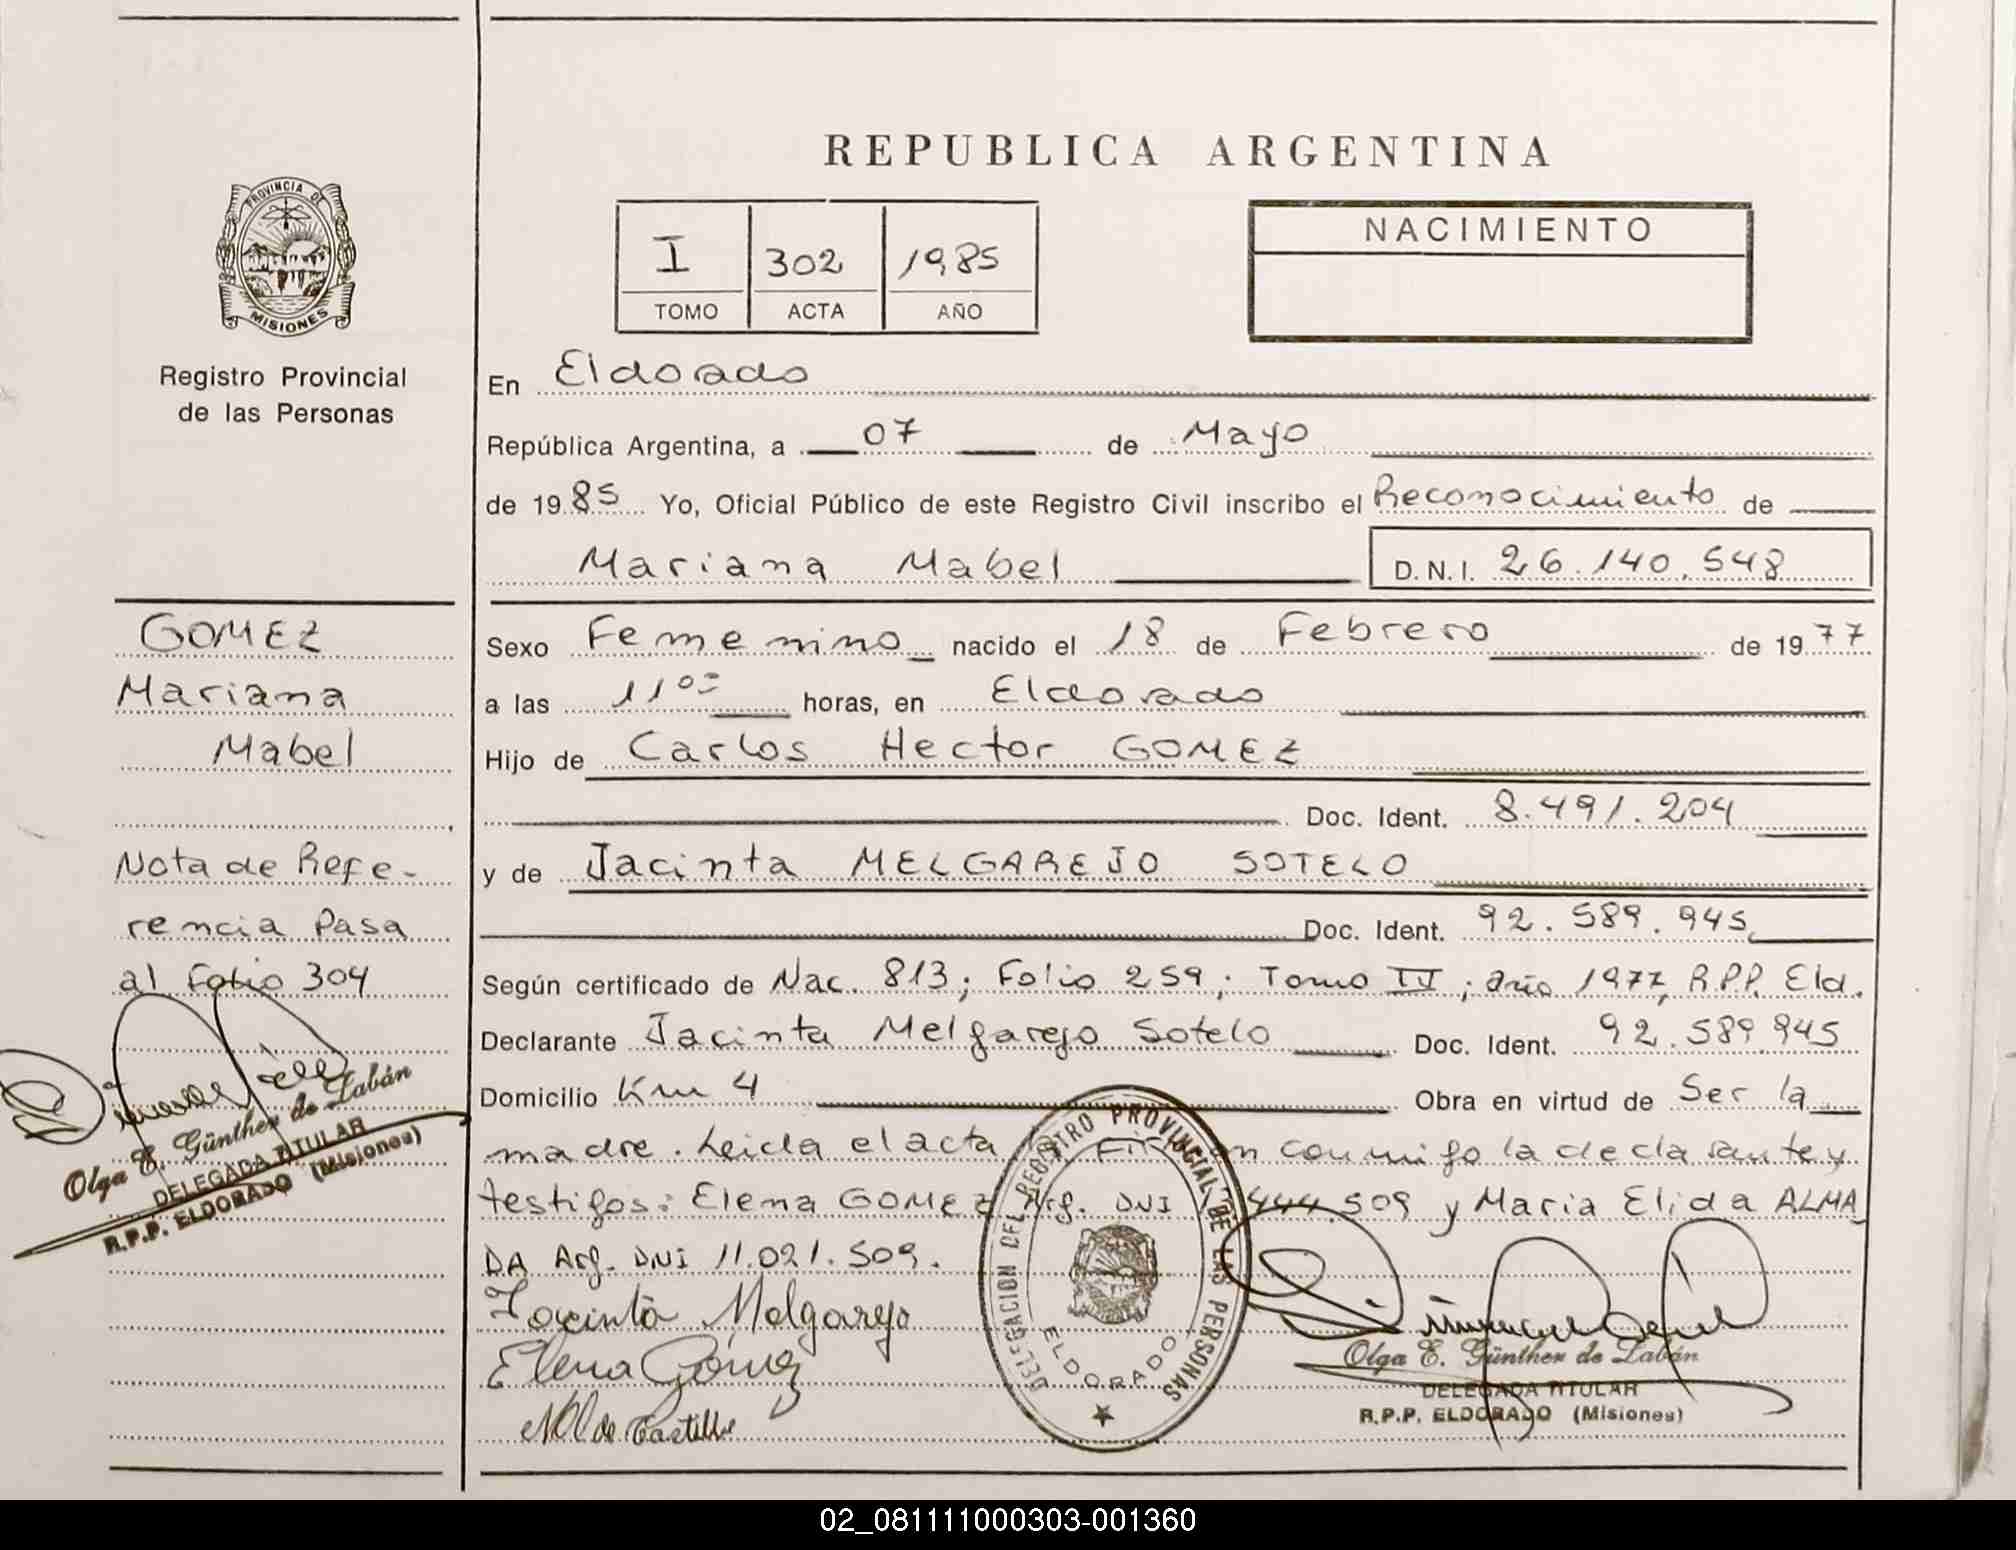 REPUBLICA ARGENTINA
PROVINCIA DE
MISIONES
Registro Provincial
de las Personas
I 302 1985
TOMO ACTA AÑO
NACIMIENTO
En Eldorado
República Argentina, a 07 de Mayo
de 1985 Yo, Oficial Público de este Registro Civil inscribo el Reconocimiento de
Mariana Mabel D.N.I. 26.140.548
Sexo Femenino nacido el 18 de Febrero de 1977
a las 11 00 horas, en Eldorado
Hijo de Carlos Hector GOMEZ
Doc. Ident. 8.491.204
y de Jacinta MELGAREJO SOTELO
Doc. Ident. 92.589.945
Según certificado de Nac. 813; Folio 259; Tomo IV; año 1977, R.P.P. Eld.
Declarante Jacinta Melgarejo Sotelo Doc. Ident. 92.589.945
Domicilio Km 4 Obra en virtud de Ser la
madre. Leida el acta conmigo la declarante y
testigos: Elena GOMEZ Arg. DNI 444.509 y Maria Elida ALMA
DA Arg. DNI 11.021.509.
Jacinta Melgarejo
Elena Gómez
de Castillo
GOMEZ
Mariana
Mabel
Nota de Refe-
rencia Pasa
al Folio 304
Olga E. Günther de Labán
DELEGADA TITULAR
R.P.P. ELDORADO (Misiones)
DELEGACION DEL REGISTRO PROVINCIAL DE LAS PERSONAS
ELDORADO
Olga E. Günther de Labán
DELEGADA TITULAR
R.P.P. ELDORADO (Misiones)
02_081111000303-001360